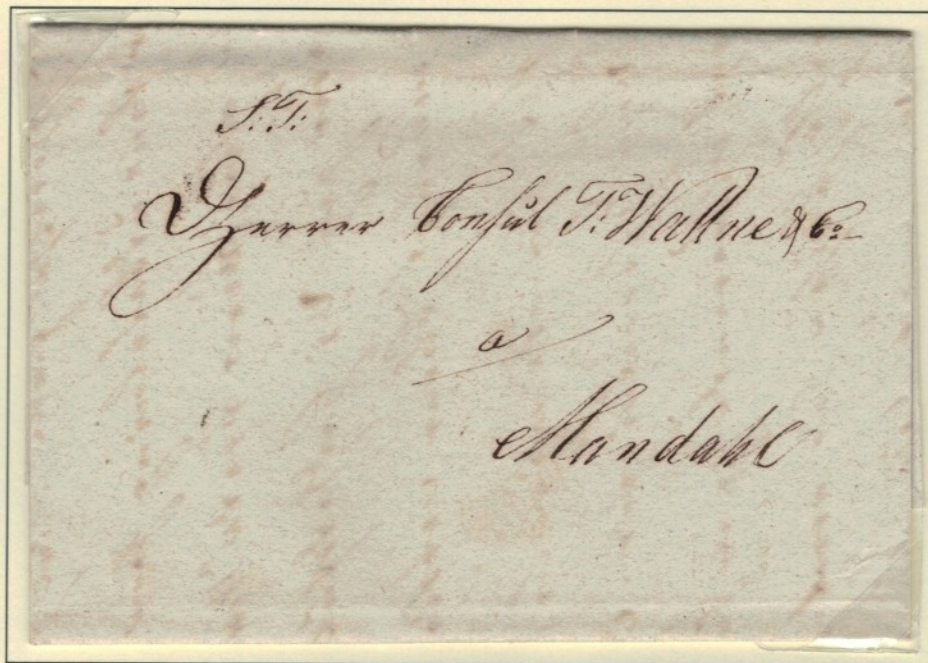 S: T:
Herrer Consul T: Wattne & Co
a
Mandahl